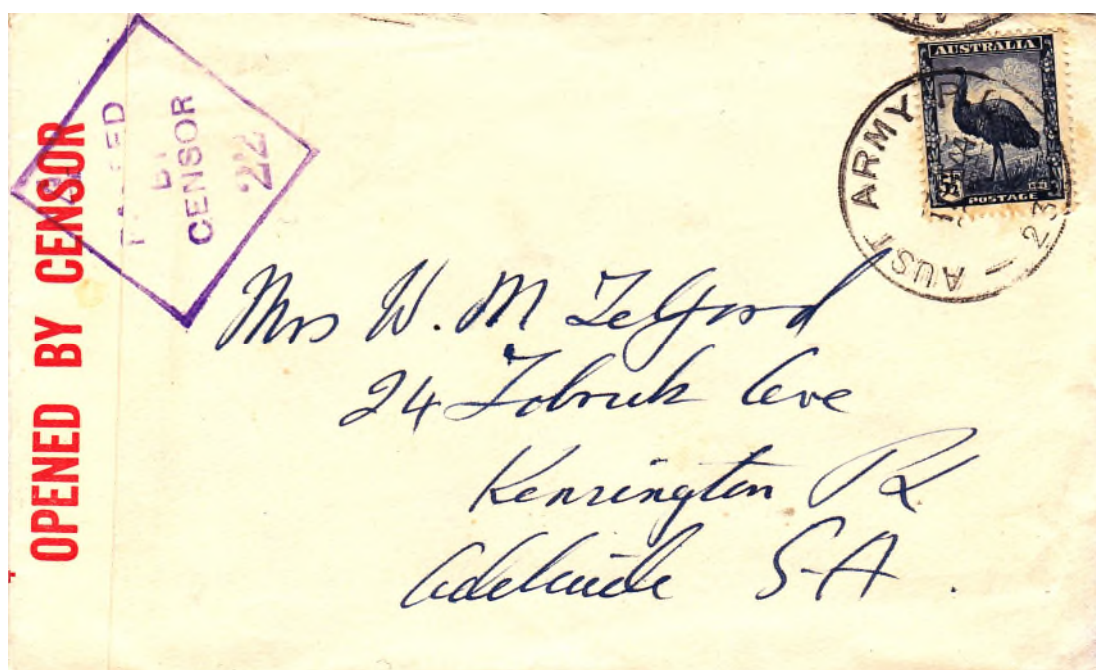 OPENED BY CENSOR
BY
CENSOR
22
AUSTRALIA
5½D
POSTAGE
AUST ARMY P
23
Mrs W. M Telford
24 Tobruk Ave
Kensington Pk
Adelaide S-A.